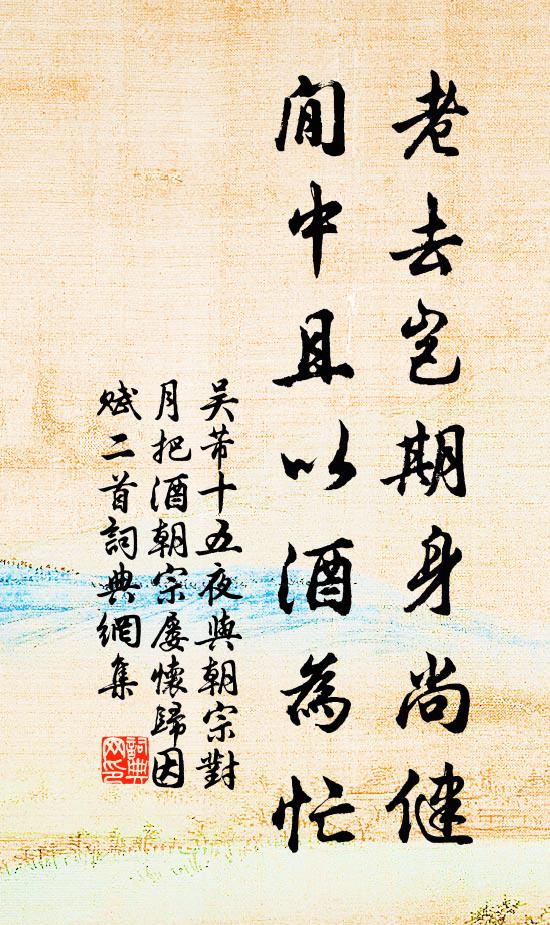 老去岂期身尚健
閒中且以酒為忙
吴芾十五夜與朝宗對
月把酒朝宗屡懷歸因
賦二首詞典網集
詞典
网印